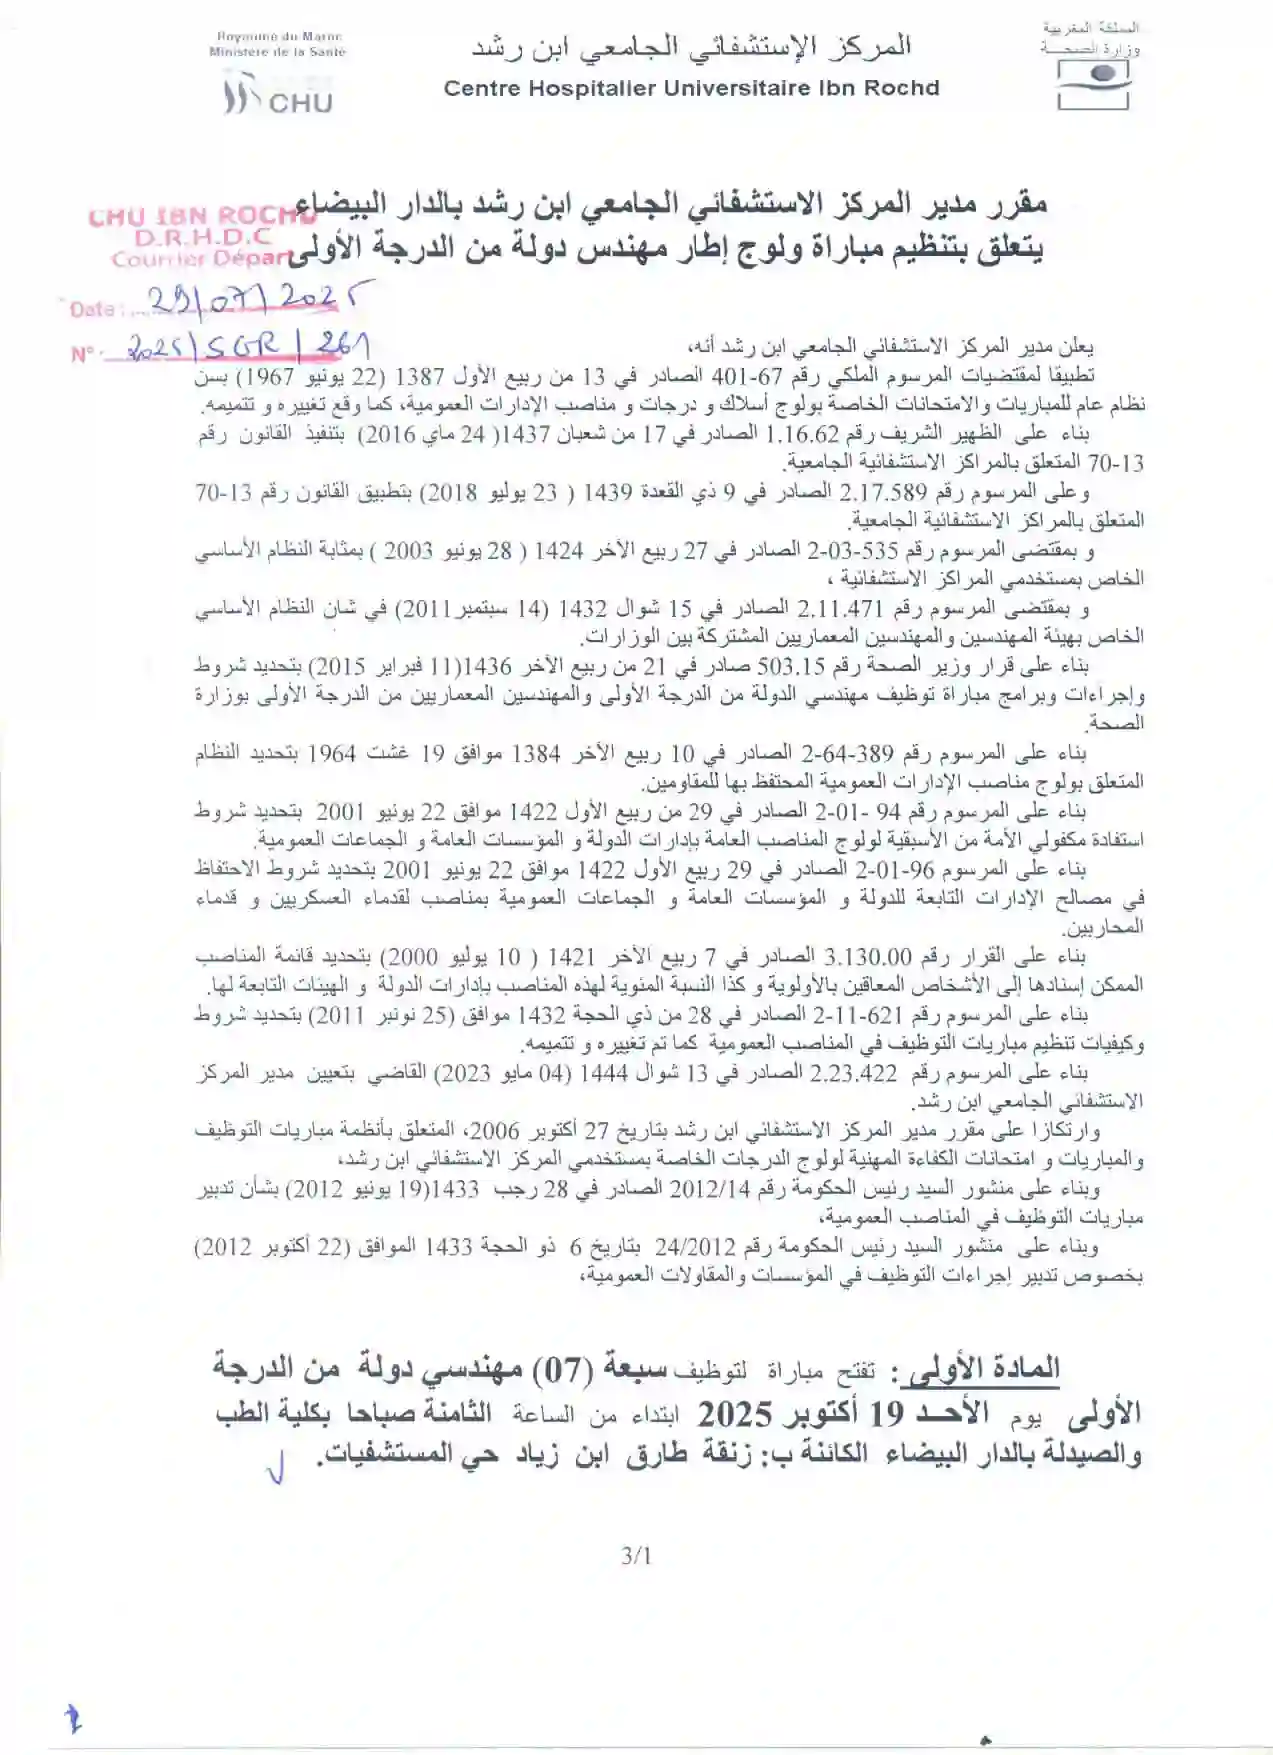 Royaume du Maroc
Ministère de la Santé
CHU
المركز الإستشفائي الجامعي ابن رشد
Centre Hospitalier Universitaire Ibn Rochd
المملكة المغربية
وزارة الصحة
مقرر مدير المركز الاستشفائي الجامعي ابن رشد بالدار البيضاء
يتعلق بتنظيم مباراة ولوج إطار مهندس دولة من الدرجة الأولى
CHU IBN ROCHD
D.R.H.D.C
Courrier Départ
Date : 29/07/2025
N° : 2025/SGR/261
يعلن مدير المركز الاستشفائي الجامعي ابن رشد أنه،
تطبيقا لمقتضيات المرسوم الملكي رقم 67-401 الصادر في 13 من ربيع الأول 1387 (22 يونيو 1967) بسن
نظام عام للمباريات والامتحانات الخاصة بولوج أسلاك و درجات و مناصب الإدارات العمومية، كما وقع تغييره و تتميمه.
بناء على الظهير الشريف رقم 1.16.62 الصادر في 17 من شعبان 1437( 24 ماي 2016) بتنفيذ القانون رقم
70-13 المتعلق بالمراكز الاستشفائية الجامعية.
وعلى المرسوم رقم 2.17.589 الصادر في 9 ذي القعدة 1439 ( 23 يوليو 2018) بتطبيق القانون رقم 13-70
المتعلق بالمراكز الاستشفائية الجامعية.
و بمقتضى المرسوم رقم 535-03-2 الصادر في 27 ربيع الآخر 1424 ( 28 يونيو 2003 ) بمثابة النظام الأساسي
الخاص بمستخدمي المراكز الاستشفائية ،
و بمقتضى المرسوم رقم 2.11.471 الصادر في 15 شوال 1432 (14 سبتمبر2011) في شان النظام الأساسي
الخاص بهيئة المهندسين والمهندسين المعماريين المشتركة بين الوزارات.
بناء على قرار وزير الصحة رقم 503.15 صادر في 21 من ربيع الآخر 1436(11 فبراير 2015) بتحديد شروط
وإجراءات وبرامج مباراة توظيف مهندسي الدولة من الدرجة الأولى والمهندسين المعماريين من الدرجة الأولى بوزارة
الصحة.
بناء على المرسوم رقم 389-64-2 الصادر في 10 ربيع الآخر 1384 موافق 19 غشت 1964 بتحديد النظام
المتعلق بولوج مناصب الإدارات العمومية المحتفظ بها للمقاومين.
بناء على المرسوم رقم 94 -01-2 الصادر في 29 من ربيع الأول 1422 موافق 22 يونيو 2001 بتحديد شروط
استفادة مكفولي الأمة من الأسبقية لولوج المناصب العامة بإدارات الدولة و المؤسسات العامة و الجماعات العمومية.
بناء على المرسوم 96-01-2 الصادر في 29 ربيع الأول 1422 موافق 22 يونيو 2001 بتحديد شروط الاحتفاظ
في مصالح الإدارات التابعة للدولة و المؤسسات العامة و الجماعات العمومية بمناصب لقدماء العسكريين و قدماء
المحاربين.
بناء على القرار رقم 3.130.00 الصادر في 7 ربيع الآخر 1421 ( 10 يوليو 2000) بتحديد قائمة المناصب
الممكن إسنادها إلى الأشخاص المعاقين بالأولوية و كذا النسبة المئوية لهذه المناصب بإدارات الدولة و الهيئات التابعة لها.
بناء على المرسوم رقم 621-11-2 الصادر في 28 من ذي الحجة 1432 موافق (25 نونبر 2011) بتحديد شروط
وكيفيات تنظيم مباريات التوظيف في المناصب العمومية كما تم تغييره و تتميمه.
بناء على المرسوم رقم 2.23.422 الصادر في 13 شوال 1444 (04 مايو 2023) القاضي بتعيين مدير المركز
الاستشفائي الجامعي ابن رشد.
وارتكازا على مقرر مدير المركز الاستشفائي ابن رشد بتاريخ 27 أكتوبر 2006، المتعلق بأنظمة مباريات التوظيف
والمباريات و امتحانات الكفاءة المهنية لولوج الدرجات الخاصة بمستخدمي المركز الاستشفائي ابن رشد،
وبناء على منشور السيد رئيس الحكومة رقم 2012/14 الصادر في 28 رجب 1433(19 يونيو 2012) بشأن تدبير
مباريات التوظيف في المناصب العمومية،
وبناء على منشور السيد رئيس الحكومة رقم 24/2012 بتاريخ 6 ذو الحجة 1433 الموافق (22 أكتوبر 2012)
بخصوص تدبير إجراءات التوظيف في المؤسسات والمقاولات العمومية،
المادة الأولى : تفتح مباراة لتوظيف سبعة (07) مهندسي دولة من الدرجة
الأولى يوم الأحد 19 أكتوبر 2025 ابتداء من الساعة الثامنة صباحا بكلية الطب
والصيدلة بالدار البيضاء الكائنة ب: زنقة طارق ابن زياد حي المستشفيات.
3/1